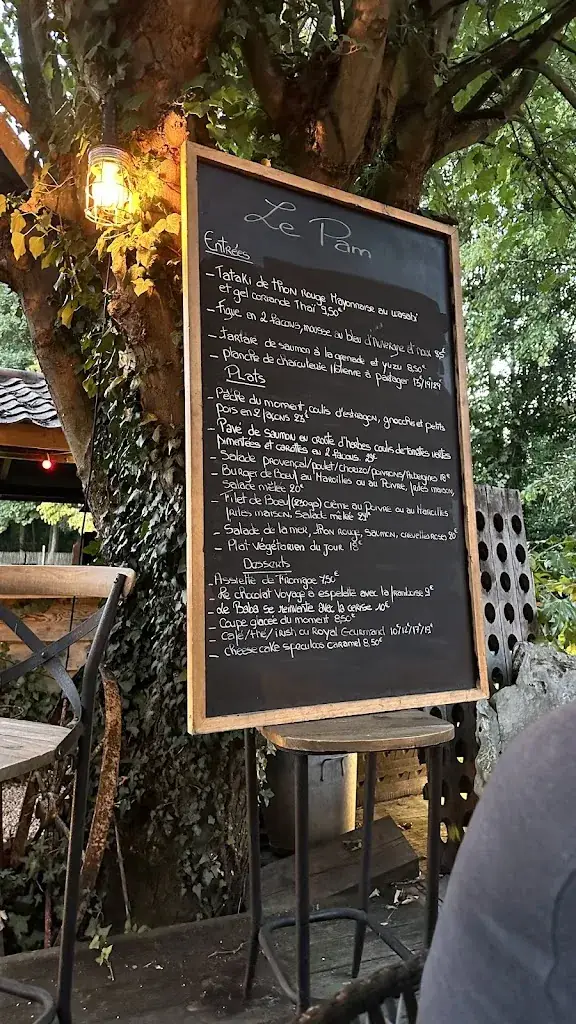 Le Pam
Entrées
- Tataki de thon rouge Mayonnaise au wasabi
et gel coriande Thaï 9,50€
- Figue en 2 façons, mousse au bleu d'Auvergne et noix 8,5€
- Tartare de saumon à la grenade et yuzu 8,50€
- planche de charcuterie Ibérienne à partager 15/19/29€
Plats
- Pêche du moment, coulis d'estragon, gnocchis et petits
pois en 2 façons 23€
- Pavé de Saumon en croûte d'herbes coulis de tomates vertes
pimentées et carottes en 2 façons.
- Salade provençal/poulet/chorizo/poivrons/Aubergines 18€
- Burger de Bœuf au Maroilles ou au Poivre, frites maison,
salade mêlée 20€
- Filet de Bœuf (230grs) crème au Poivre ou au Maroilles
frites maison, Salade mêlée
- Salade de la mer, thon rouge, saumon, crevettes roses 20€
- Plat végétarien du jour 18€
Desserts
- Assiette de Fromage 7,50€
- Le chocolat voyage à espelette avec la framboise 9€
- Le Baba se réinvente avec la cerise 10€
- Coupe glacée du moment 8,50€
- café/thé/irish, ou Royal Gourmand 10/12/17/19€
- cheesecake speculoos caramel 8,50€